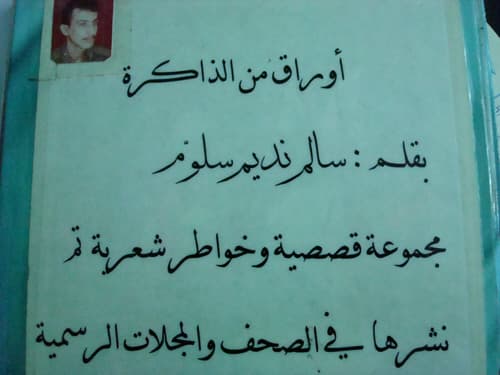 أوراق من الذاكرة
بقلم : سالم نديم سلوّم
مجموعة قصصية وخواطر شعرية تم
نشرها في الصحف والمجلات الرسمية